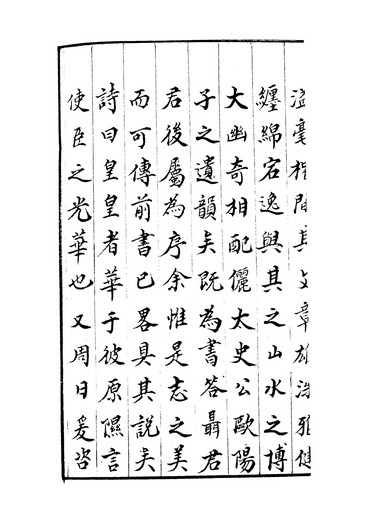 毫楮間其文章雄渾雅健
纏綿宕逸與其之山水之博
大幽奇相配儷太史公歐陽
子之遺韻矣既為書答聶君
君後屬為序余惟是志之美
而可傳前書已畧具其說矣
詩曰皇皇者華于彼原隰言
使臣之光華也又周曰爰咨